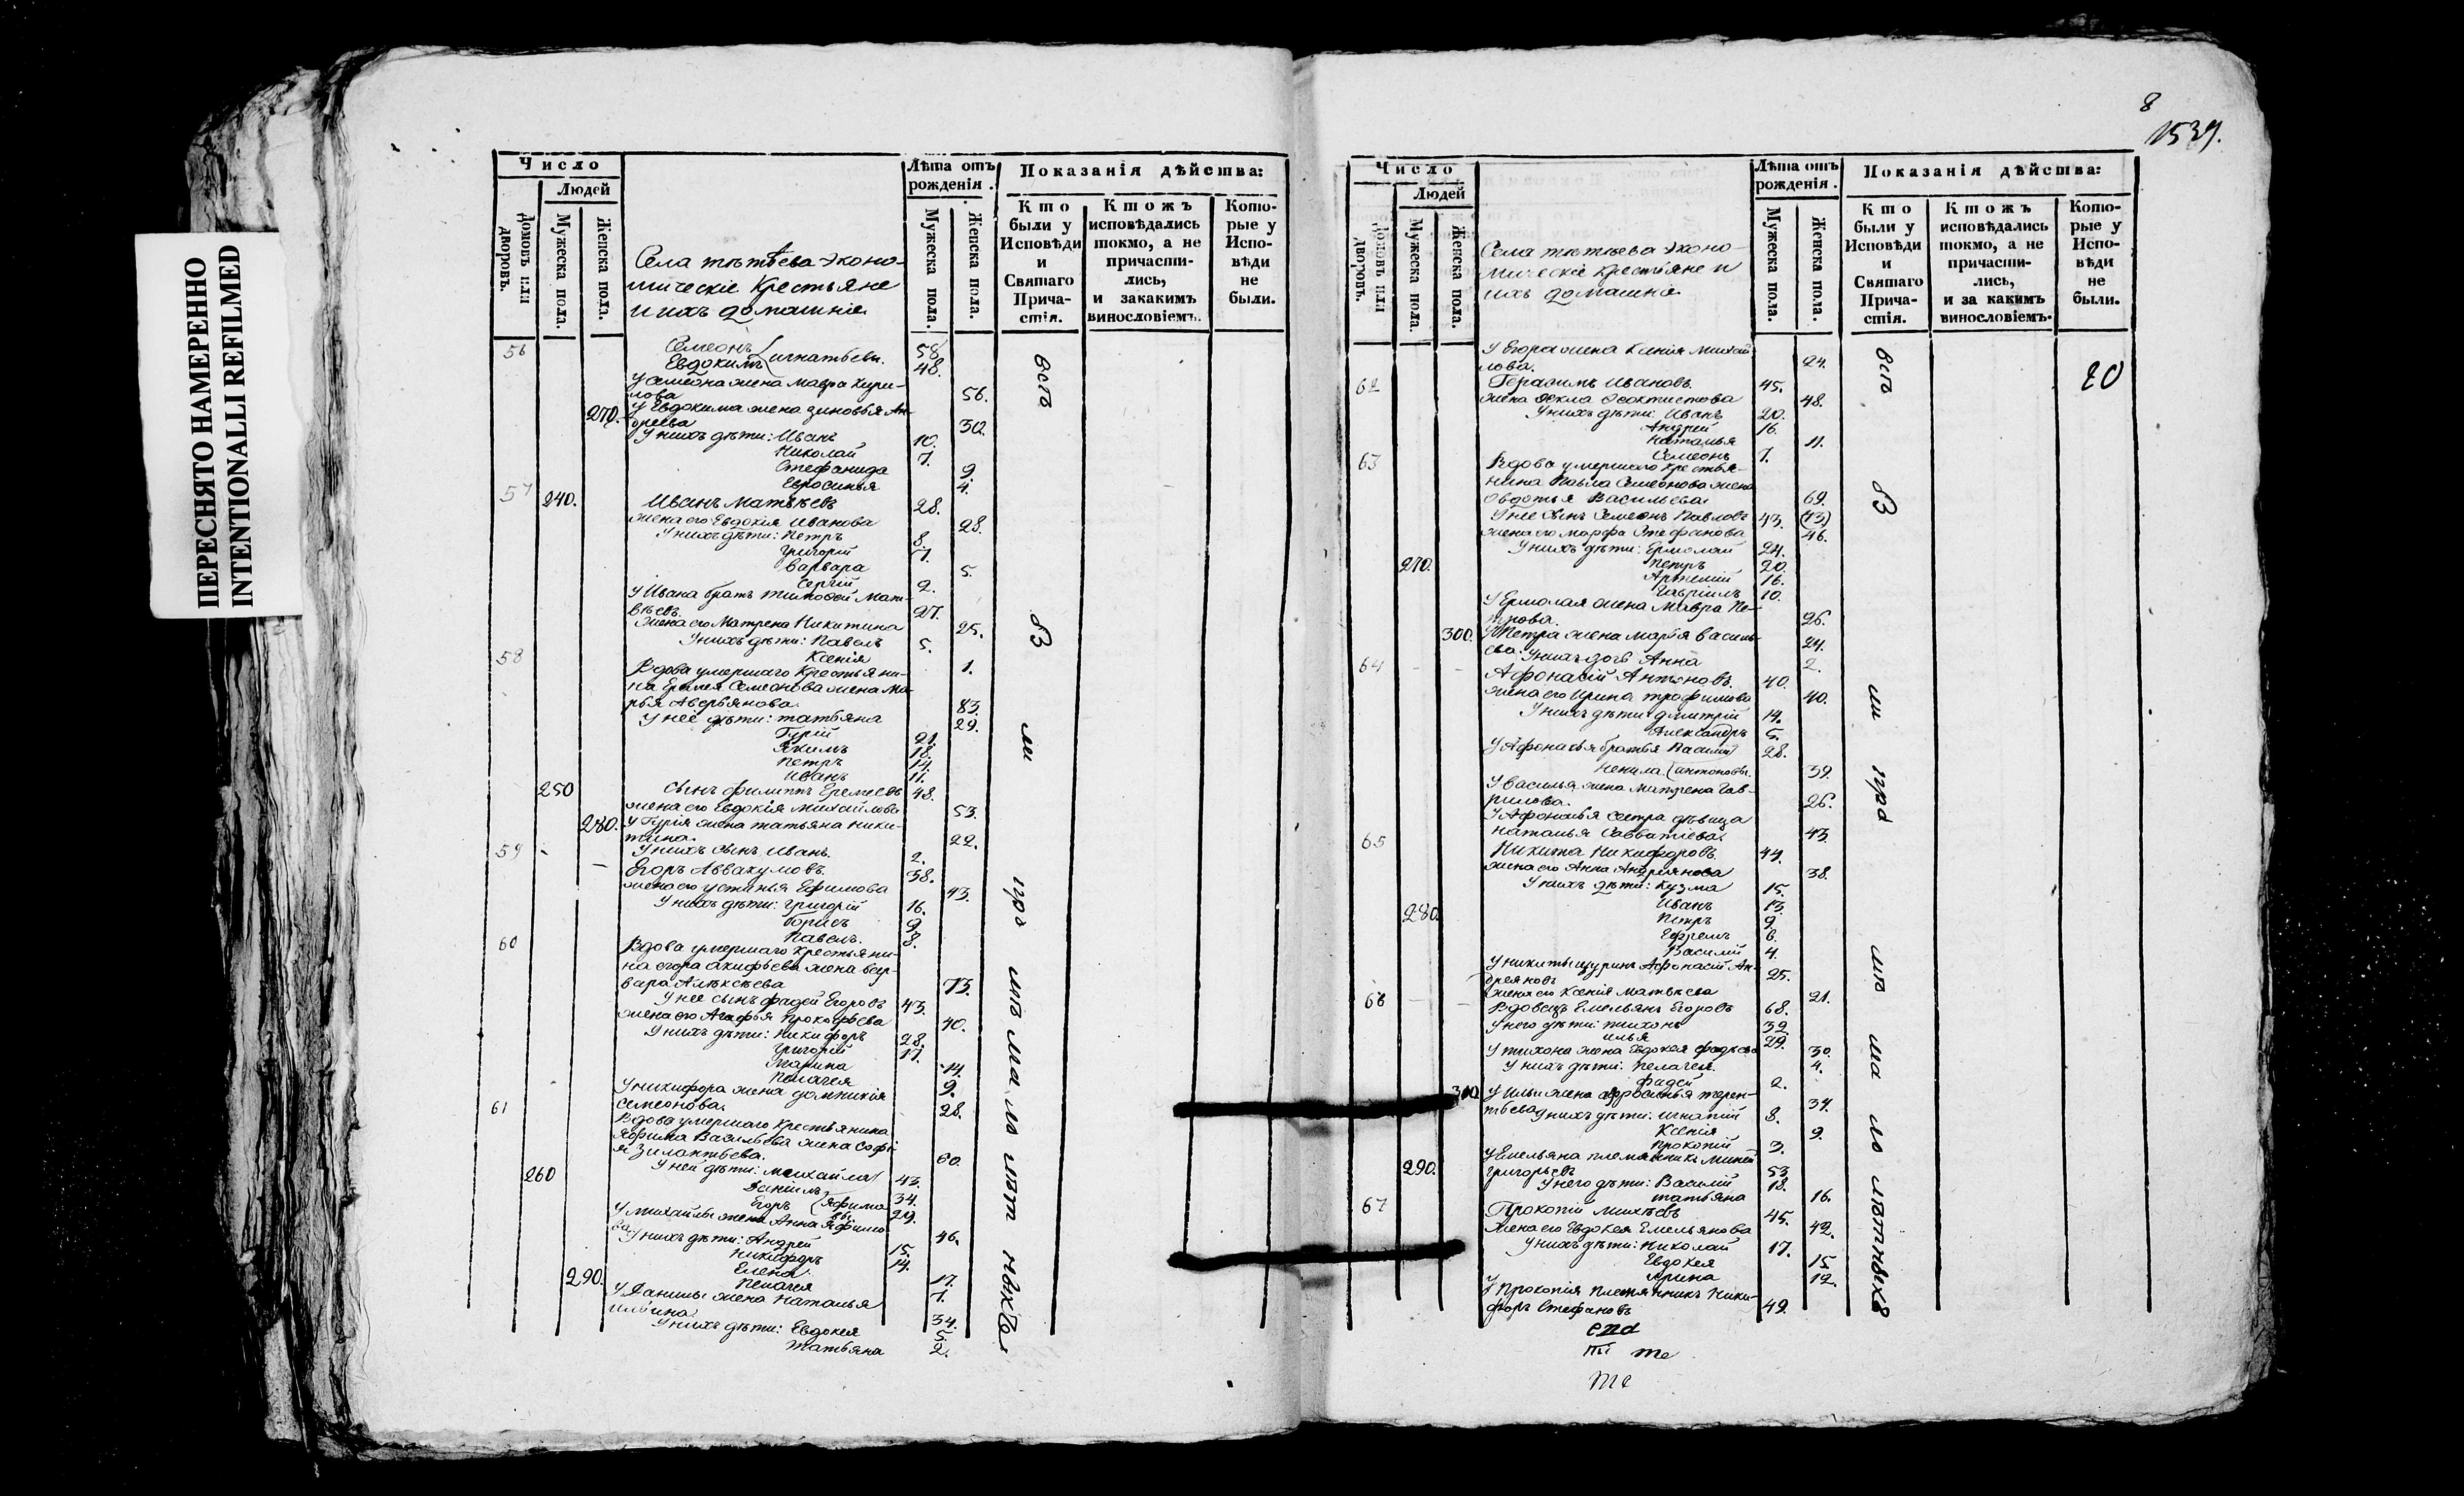 ПЕРЕСНЯТО НАМЕРЕННО
INTENTIONALLI REFILMED
Число
Людей
Домовъ или дворовъ.
Мужеска пола.
Женска пола.
Лѣта отъ рожденія.
Мужеска пола.
Женска пола.
Показанія дѣйства:
Кто были у Исповѣди и Святаго Причастія.
Ктожъ исповѣдались токмо, а не причастились, и закакимъ винословіемъ.
Которые у Исповѣди не были.
Села тѣтѣева эконо-
мическіе Крестьяне
и ихъ домашніе
56 Семеонъ 58.
Евдокимъ игнатьевы. 48.
У семеона жена мавра кири-
лова 56.
270. У Евдокима жена зиновья Ан-
дреева 30.
У нихъ дѣти: Иванъ 10.
Николай 7.
Стефанида 9.
Евросинья 4.
57 240. Иванъ Матвѣевъ 28.
жена его Евдокія Иванова 28.
У нихъ дѣти: Петръ 8.
Григорій 7.
Варвара 5.
Сергій 2.
У Ивана братъ тимофей Мат-
вѣевъ 27.
Жена его Матрена Никитина 25.
У нихъ дѣти: Павелъ 5.
Ксенія 1.
58 Вдова умершаго Крестьяни-
на Еремея Семеонова жена Ма-
рья Аверьянова 83.
У нее дѣти: татьяна 29.
Гурій 21.
Якимъ 18.
Петръ 14.
Иванъ 11.
250 Сынъ филиппъ Еремеевъ 48.
жена его Евдокія Михайлова 53.
280. У Гурія жена татьяна Ники-
тина 22.
У нихъ сынъ Иванъ. 2.
59 Егоръ Аввакумовъ. 38.
жена его устинья Ефимова 43.
У нихъ дѣти: Григорій 16.
Борисъ 9.
Павелъ. 8.
60 Вдова умершаго крестьяни-
на егора акифьева жена вар-
вара Алѣксѣева 73.
У нее сынъ фадей Егоровъ 43.
жена его Агафья Прокофьева 40.
У нихъ дѣти: Никифоръ 28.
Григорій 17.
Марина 14.
Пелагея 9.
У никифора жена домникія
семеонова. 28.
61 Вдова умершаго крестьянина
Яфима Васильева жена Софі
я Зилантьева. 60.
260 У ней дѣти: михайла 43.
Даніилъ 34.
Егоръ Яфимовы 29.
У михайлы жена Анна Яфимо-
ва 46.
У нихъ дѣти: Андрей 15.
Никифоръ 14.
Елена 17.
290. Пелагея 7.
У Данилы жена Наталья
ильина 34.
У нихъ дѣти: Евдокея 5.
Татьяна 2.
всѣ
8
1537.
Число
Людей
Домовъ или дворовъ.
Мужеска пола.
Женска пола.
Лѣта отъ рожденія.
Мужеска пола.
Женска пола.
Показанія дѣйства:
Кто были у Исповѣди и Святаго Причастія.
Ктожъ исповѣдались токмо, а не причастились, и за какимъ винословіемъ.
Которые у Исповѣди не были.
Села тѣтѣева эконо-
мическіе крестьяне и
ихъ домашніе
У Егора жена Ксенія Михай
лова. 24.
62 Герасимъ Ивановъ. 45.
жена Фекла Феоктистова 48.
У нихъ дѣти: Иванъ 20.
Андрей 16.
Наталья 11.
Семеонъ 7.
63 Вдова умершаго крестья-
нина Павла Семеонова жена
Овдотья Васильева 69.
У нее сынъ Семеонъ Павловъ 43. (73)
жена его марфа Стефанова 46.
У нихъ дѣти: Ермолай 24.
270. Петръ 20.
Артемій 16.
Гавріилъ 10.
У Ермолая жена Мавра Пе-
трова. 26.
300. У Петра жена марія василь-
ева. 24.
У нихъ дочь Анна 2.
64 Афонасій Антоновъ. 40.
жена его Ирина трофимова 40.
У нихъ дѣти: дмитрій 14.
Александръ 5.
У Афонасья братья Василий 28.
Ненила антоновы. 39.
У василья жена матрена Гав-
рилова. 26.
У Афонасья сестра дѣвица
Наталья Савватіева. 43.
65 Никита Никифоровъ. 44.
жена его Анна Андреянова 38.
У нихъ дѣти: кузма 15.
Иванъ 13.
280. Петръ 9.
Ефремъ 6.
Василий 4.
У никиты шуринъ Афонасій Ан-
дреяновъ 25.
жена его Ксенія матвѣева 21.
66 Вдовецъ Емельянъ Егоровъ 68.
У него дѣти: тихонъ 32
илья 29.
У тихона жена Евдокея фадѣева 30.
У нихъ дѣти: Пелагея. 4.
фадей 2.
310 У Ильи жена афросинья терен-
тьева 34.
У нихъ дѣти: игнатій 8.
Ксенія 9.
Прокопій 3.
У Емельяна племянникъ Михей
290. григорьевъ 53
У него дѣти: Василій 18.
татьяна 16.
67 Прокопій михѣевъ 45.
Жена его Евдокея Емельянова 42.
У нихъ дѣти: Николай 17.
Евдокея 15
Ирина 12.
У Прокопія племянникъ Ники-
форъ Стефановъ 49.
всѣ
20